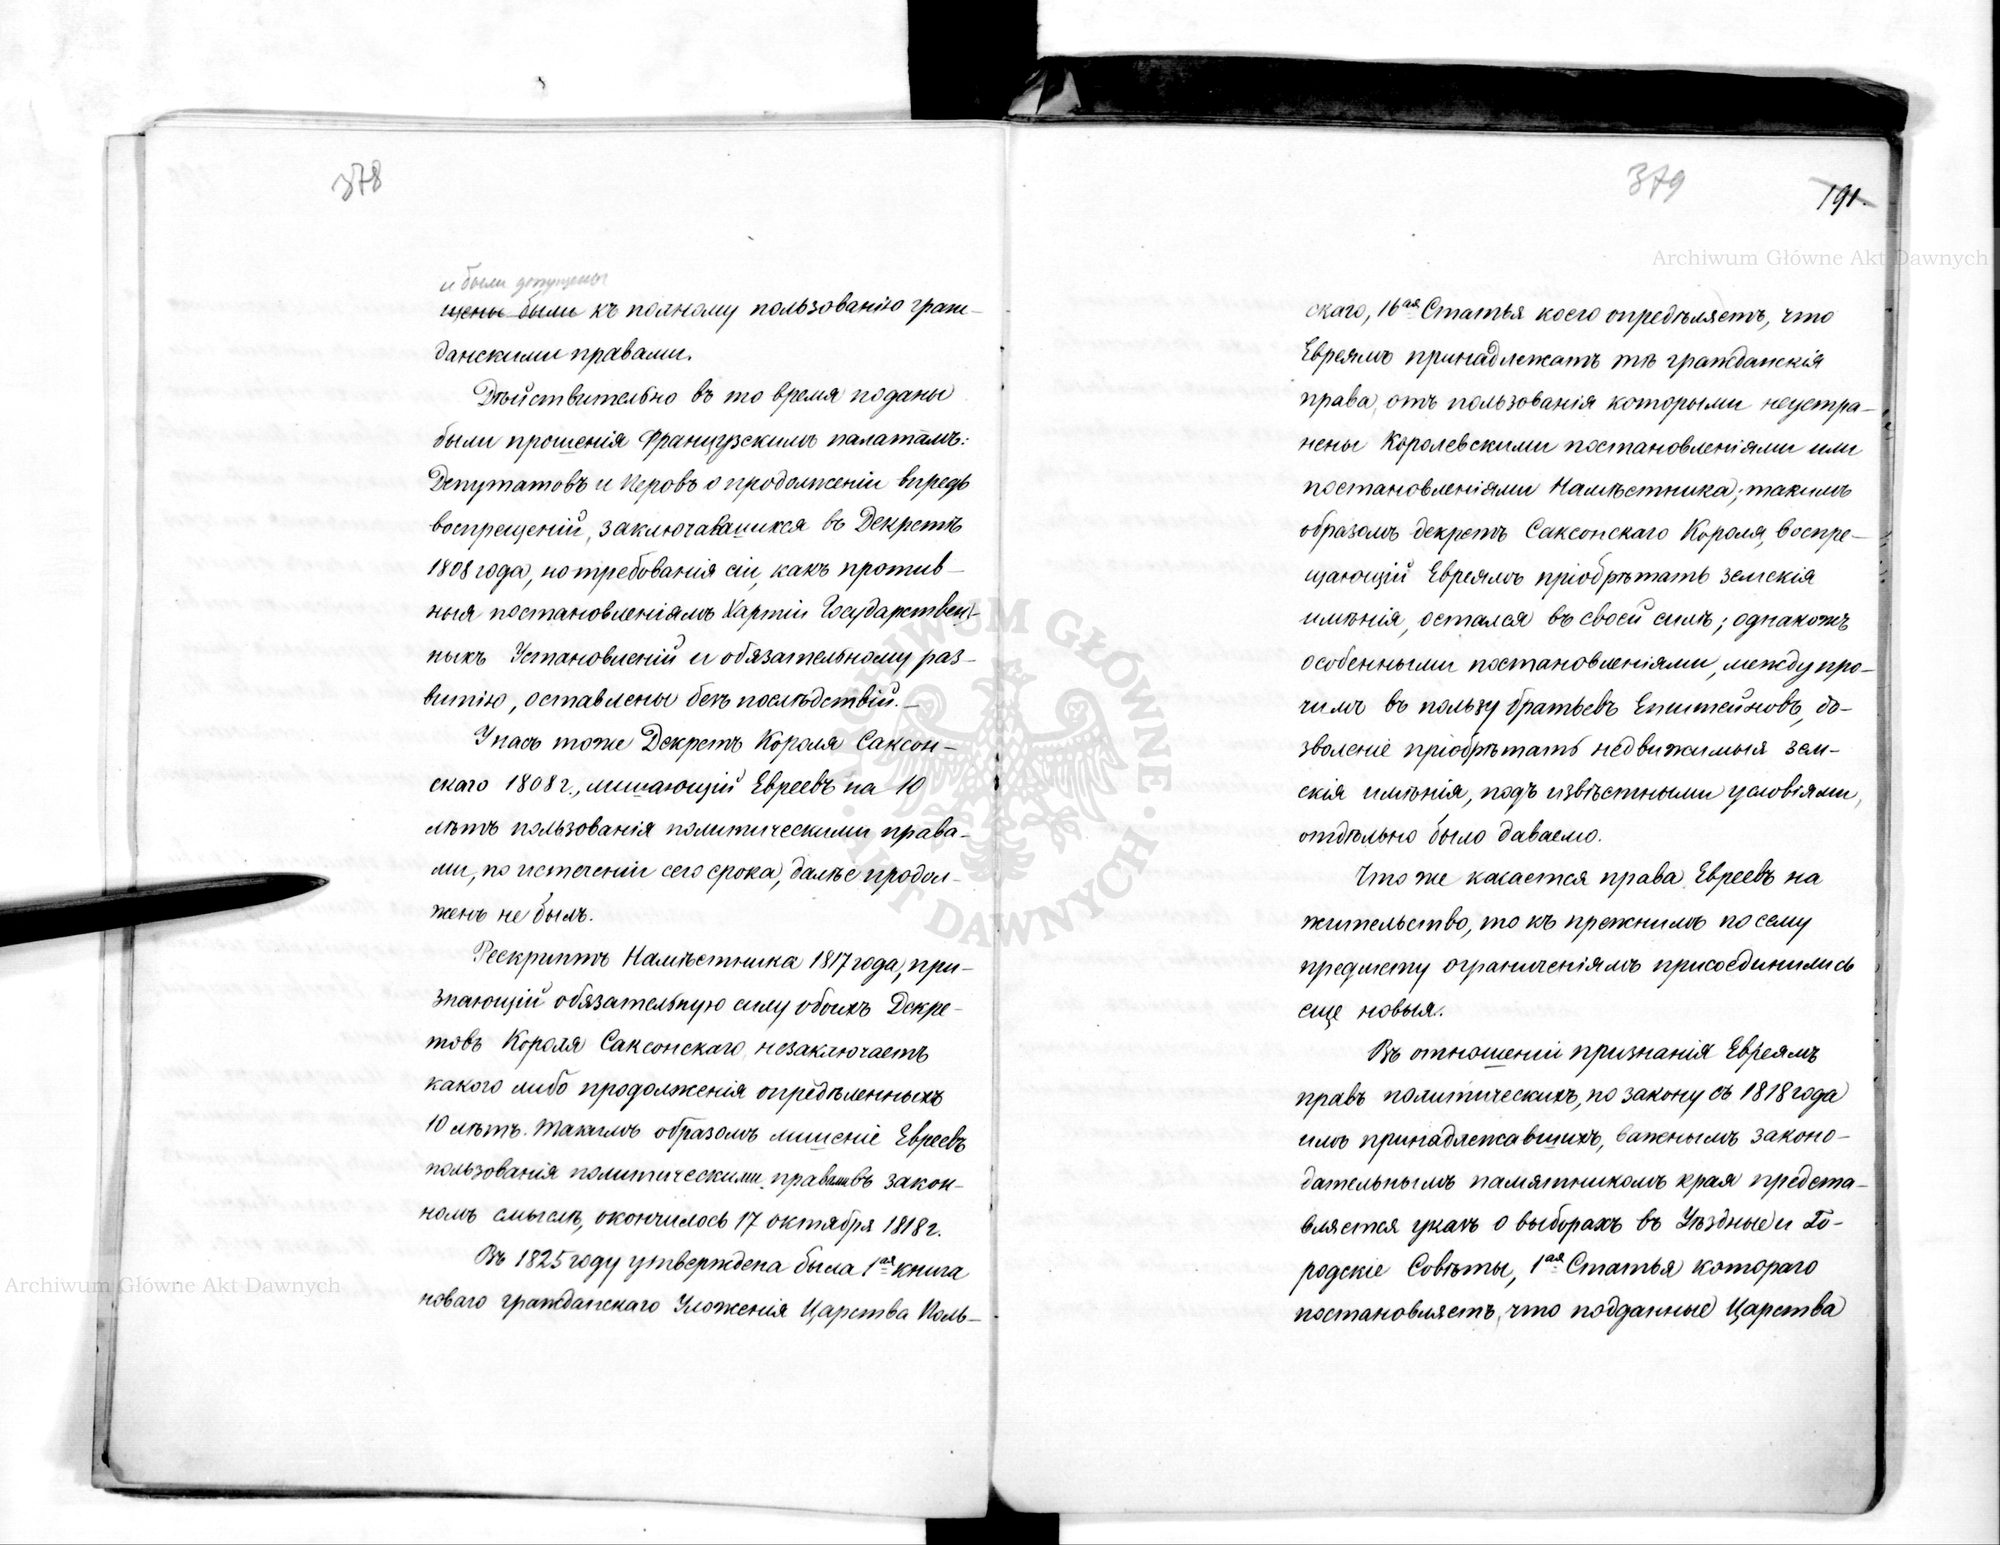 378
и были допущены
щены были къ полному пользованію граж-
данскими правами.
Дѣйствительно въ то время поданы
были прошенія Французскимъ палатамъ:
Депутатовъ и Перовъ о продолженіи впредь
воспрещеній, заключавшихся въ Декретѣ
1808 года, но требованія сіи, какъ против-
ныя постановленіямъ Хартіи Государствен-
ныхъ Установленій и обязательному раз-
витію, оставлены безъ послѣдствій.—
У насъ тоже Декретъ Короля Саксон-
скаго 1808 г., лишающій Евреевъ на 10
лѣтъ пользованія политическими права-
ми, по истеченіи сего срока, далѣе продол-
женъ не былъ.
Рескриптъ Намѣстника 1817 года, при-
знающій обязательную силу обоихъ Декре-
товъ Короля Саксонскаго, незаключаетъ
какого либо продолженія опредѣленныхъ
10 лѣтъ. Такимъ образомъ лишеніе Евреевъ
пользованія политическими правами въ закон-
номъ смыслѣ, окончилось 17 октября 1818 г.
Въ 1825 году утверждена была 1ая книга
новаго гражданскаго Уложенія Царства Поль-
379
191.
скаго, 16ая Статья коего опредѣляетъ, что
Евреямъ принадлежатъ тѣ гражданскія
права, отъ пользованія которыми неустра-
нены Королевскими постановленіями или
постановленіями Намѣстника; такимъ
образомъ декретъ Саксонскаго Короля, воспре-
щающій Евреямъ пріобрѣтать земскія
имѣнія, остался въ своей силѣ; однакожъ
особенными постановленіями, между про-
чимъ въ пользу братьевъ Епштейновъ, до-
зволеніе пріобрѣтать недвижимыя зем-
скія имѣнія, подъ извѣстными условіями,
отдѣльно было даваемо.
Что же касается права Евреевъ на
жительство, то къ прежнимъ по сему
предмету ограниченіямъ присоединились
еще новыя.
Въ отношеніи признанія Евреямъ
правъ политическихъ, по закону съ 1818 года
имъ принадлежавшихъ, важнымъ законо-
дательнымъ памятникомъ края предста-
вляется указъ о выборахъ въ Уѣздные и Го-
родскіе Совѣты, 1ая Статья котораго
постановляетъ, что подданные Царства
Archiwum Główne Akt Dawnych
Archiwum Główne Akt Dawnych
ARCHIWUM GŁÓWNE · AKT DAWNYCH ·